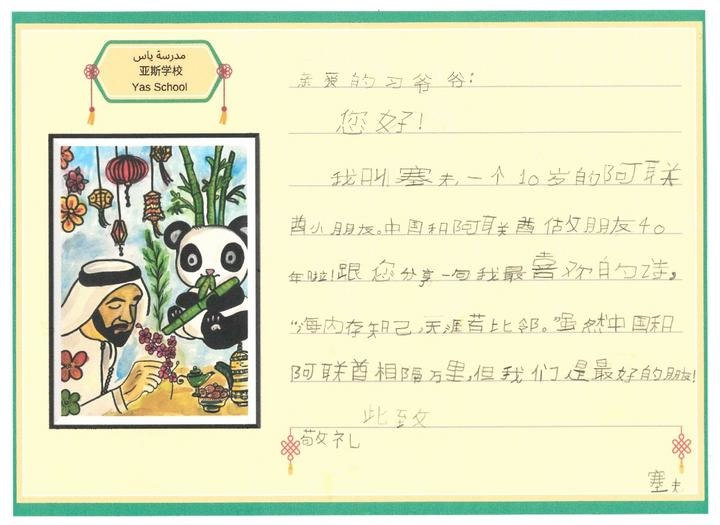 مدرسة ياس
亚斯学校
Yas School
亲爱的习爷爷：
您好！
我叫塞夫,一个10岁的阿联
酋小朋友。中国和阿联酋做朋友40
年啦！跟您分享一句我最喜欢的诗,
“海内存知己,天涯若比邻。虽然中国和
阿联酋相隔万里,但我们是最好的朋友!
此至文
敬礼
塞夫